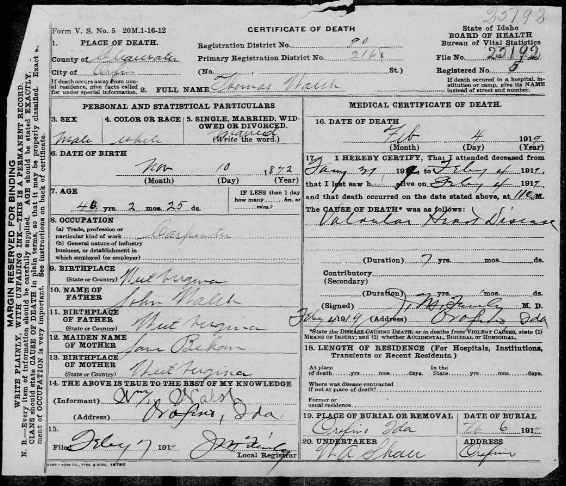 23192
Form V. S. No. 5 20M.1-16-12
CERTIFICATE OF DEATH
State of Idaho
BOARD OF HEALTH
Bureau of Vital Statistics
1. PLACE OF DEATH.
Registration District No. 90
County of Clearwater
Primary Registration District No. 2168
File No. 23192
City of Orofino
(No. St.)
Registered No. 5
If death occurs away from usual residence, give facts called for under special information.
2. FULL NAME Thomas Walsh
If death occurred in a hospital, institution or camp, give its NAME instead of street and number.
PERSONAL AND STATISTICAL PARTICULARS
3. SEX
4. COLOR OR RACE
5. SINGLE, MARRIED, WIDOWED OR DIVORCED.
Male
White
Married
(Write the word.)
6. DATE OF BIRTH
Nov 10 1872
(Month) (Day) (Year)
7. AGE
IF LESS than 1 day how many
46 yrs. 2 mos. 25 ds.
hrs. or min.
8. OCCUPATION
(a) Trade, profession or particular kind of work Carpenter
(b) General nature of industry, business, or establishment in which employed (or employer)
9. BIRTHPLACE
(State or Country) West Virginia
10. NAME OF FATHER John Walsh
11. BIRTHPLACE OF FATHER
(State or Country) West Virginia
12. MAIDEN NAME OF MOTHER Jane
13. BIRTHPLACE OF MOTHER
(State or Country) West Virginia
14. THE ABOVE IS TRUE TO THE BEST OF MY KNOWLEDGE
(Informant) Walsh
(Address) Orofino, Ida
15.
Filed Feby 7 191
Local Registrar
MEDICAL CERTIFICATE OF DEATH.
16. DATE OF DEATH.
Feb 4 1919
(Month) (Day) (Year)
17. I HEREBY CERTIFY, That I attended deceased from
Jany 31 191 to Feby 4 191
that I last saw h alive on Feby 4 191
and that death occurred on the date stated above, at M.
The CAUSE OF DEATH* was as follows:
Valvular Heart Disease
(Duration) 7 yrs. mos. ds.
Contributory
(Secondary)
(Duration) 7 yrs. mos. ds.
(Signed) M. D.
Feb 4 1919 (Address) Orofino Ida
*State the DISEASE CAUSING DEATH, or in deaths from VIOLENT CAUSES, state (1) MEANS OF INJURY; and (2) whether ACCIDENTAL, SUICIDAL OR HOMICIDAL.
18. LENGTH OF RESIDENCE (For Hospitals, Institutions, Transients or Recent Residents.)
At place of death yrs. mos. days. In the State yrs. mos. days.
Where was disease contracted if not at place of death?
Former or usual residence
19. PLACE OF BURIAL OR REMOVAL
DATE OF BURIAL
Orofino Ida
Feb 6 191
20. UNDERTAKER
ADDRESS
Shaw
Orofino
MARGIN RESERVED FOR BINDING
WRITE PLAINLY, WITH UNFADING INK—THIS IS A PERMANENT RECORD.
N. B.—Every item of information should be carefully supplied. AGE should be stated EXACTLY. PHYSICIANS should state CAUSE OF DEATH in plain terms, so that it may be properly classified. Exact statement of OCCUPATION is very important. See instructions on back of certificate.